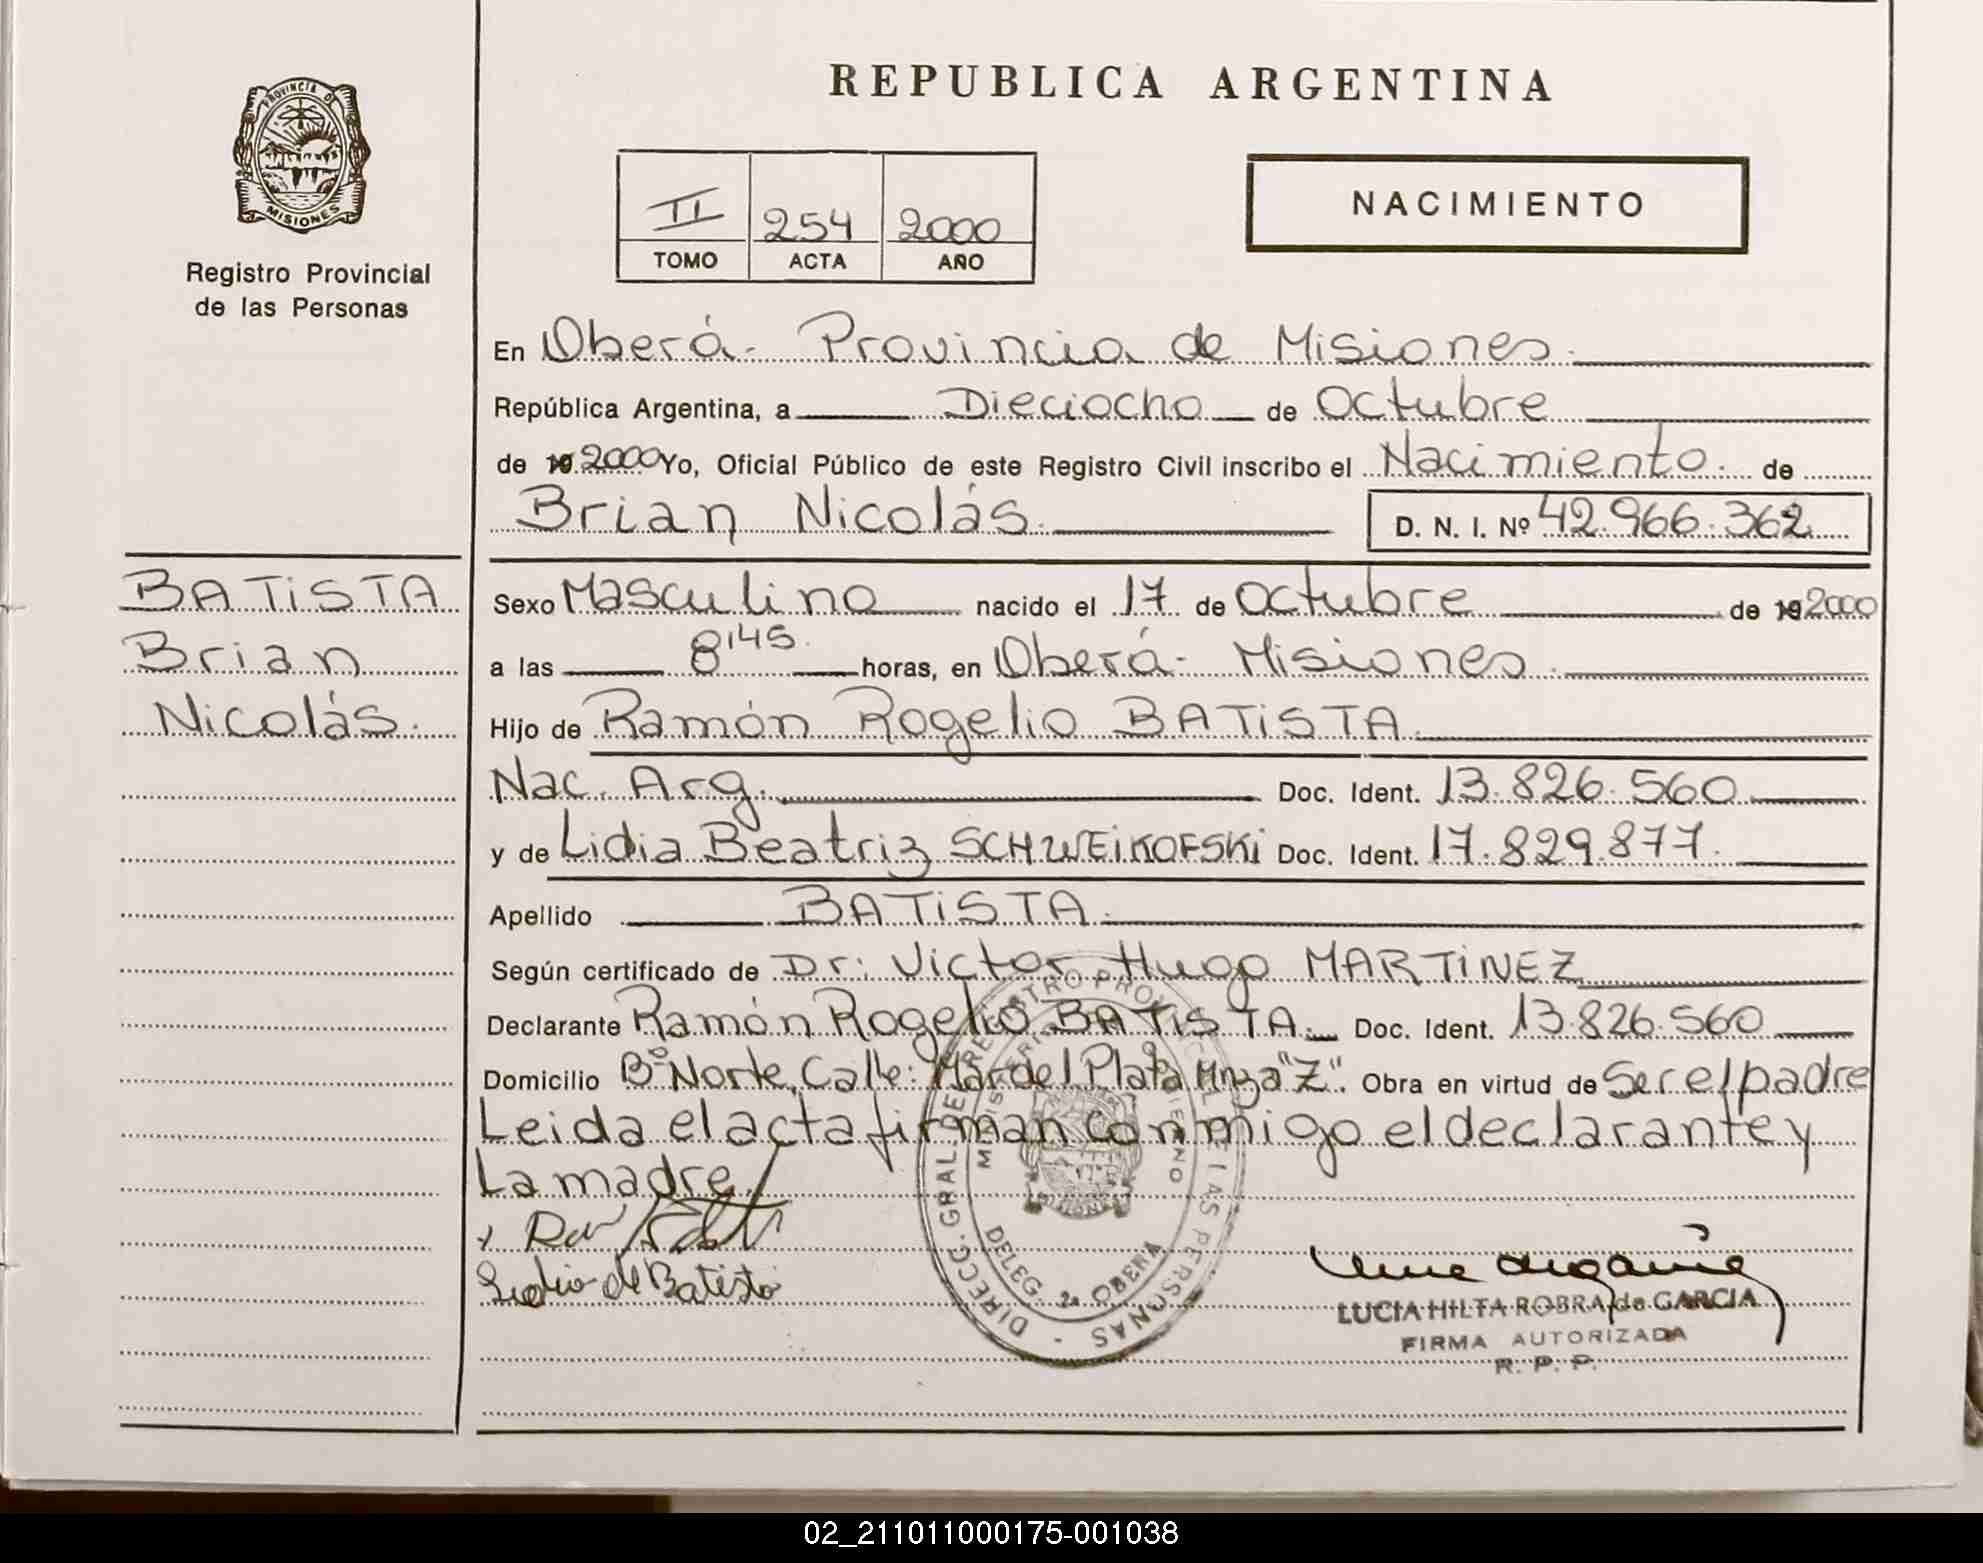 REPUBLICA ARGENTINA
PROVINCIA DE
MISIONES
Registro Provincial
de las Personas
II 254 2000
TOMO ACTA AÑO
NACIMIENTO
En Oberá - Provincia de Misiones.
República Argentina, a Dieciocho de Octubre
de 19 2000 Yo, Oficial Público de este Registro Civil inscribo el Nacimiento. de
Brian Nicolás.
D. N. I. Nº 42.966.362
BATiSTA
Brian
Nicolás.
Sexo Masculino nacido el 17 de Octubre de 19 2000
a las 8'45 horas, en Oberá - Misiones.
Hijo de Ramón Rogelio BATiSTA.
Nac. Arg. Doc. Ident. 13.826.560
y de Lidia Beatriz SCHWEiKOFSKi Doc. Ident. 17.829.877.
Apellido BATiSTA.
Según certificado de Dr: Victor Hugo MARTiNEZ
Declarante Ramón Rogelio BATiSTA. Doc. Ident. 13.826.560
Domicilio Bº Norte, Calle: Mar del Plata Mnza "Z". Obra en virtud de Ser el padre
Leida el acta firman conmigo el declarante y
La madre
Lidia de Batista
DIRECC. GRAL. DEL REGISTRO PROVINCIAL DE LAS PERSONAS -
MINISTERIO GOBIERNO
DELEG. 2ª OBERA
MISIONES
LUCIA HILTA ROBRA de GARCIA
FIRMA AUTORIZADA
R. P. P.
02_211011000175-001038